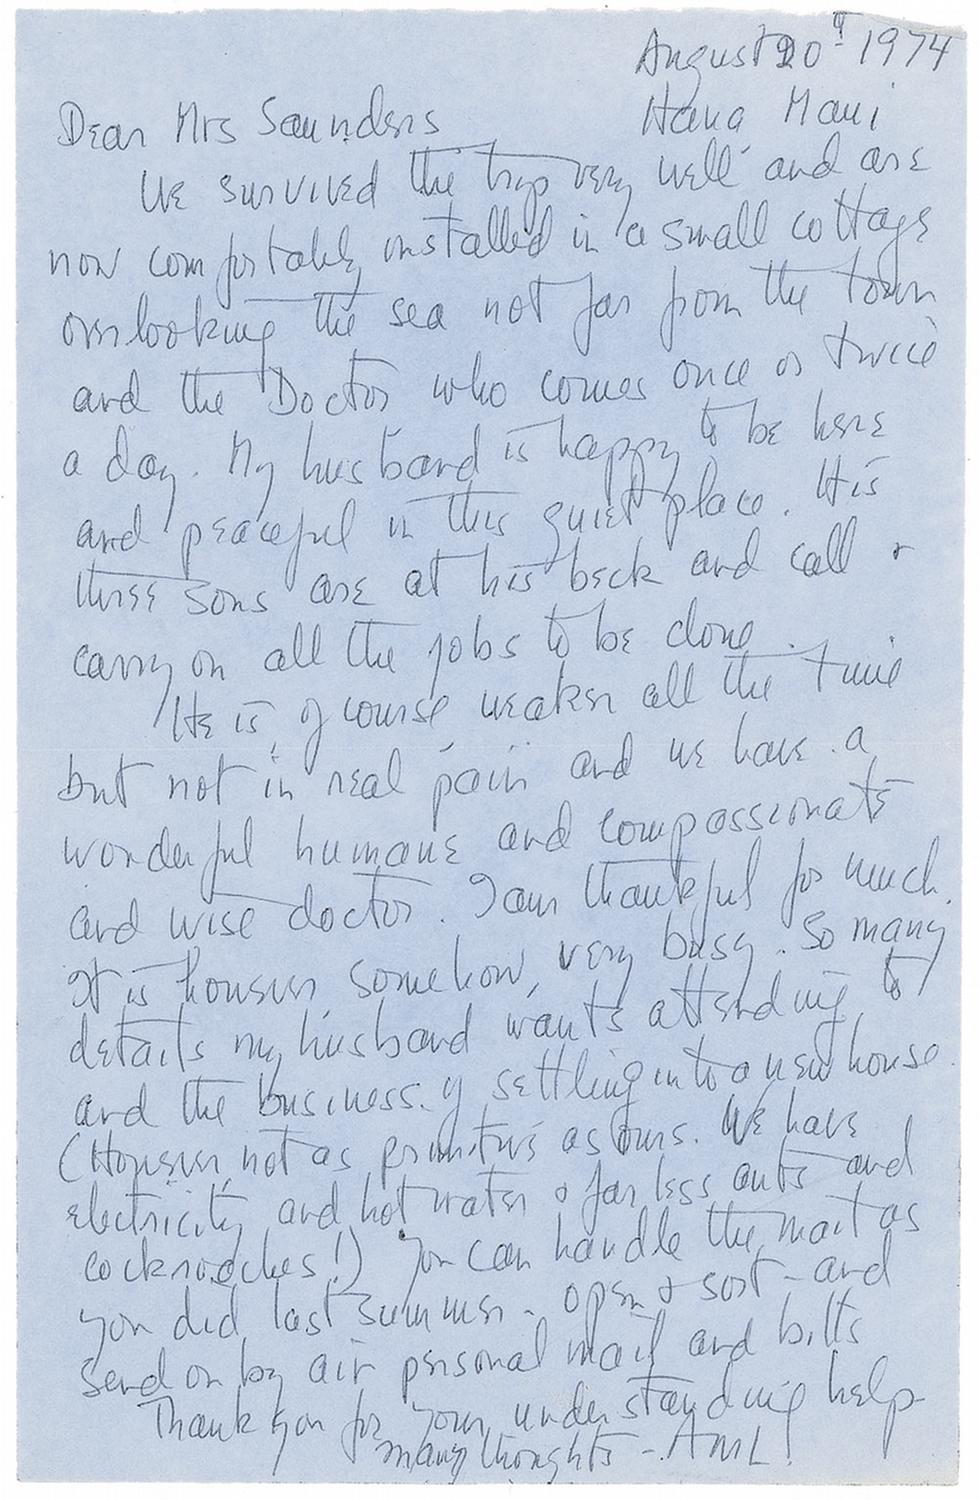 August 20th 1974
Hana Maui
Dear Mrs Saunders
We survived the trip very well and are
now comfortably installed in a small cottage
overlooking the sea not far from the town
and the Doctor who comes once or twice
a day. My husband is happy to be here
and peaceful in this quiet place. His
three sons are at his beck and call &
carry on all the jobs to be done.
He is, of course weaker all the time
but not in real pain and we have a
wonderful humane and compassionate
and wise doctor. I am thankful for much.
It is however somehow, very busy. So many
details my husband wants attending to
and the business of settling into a new house.
(However, not as primitive as ours. We have
electricity and hot water & far less ants and
cockroaches!) You can handle the mail as
you did last summer - open & sort - and
send on by air personal mail and bills
Thank you for your understanding help
many thoughts - AML.